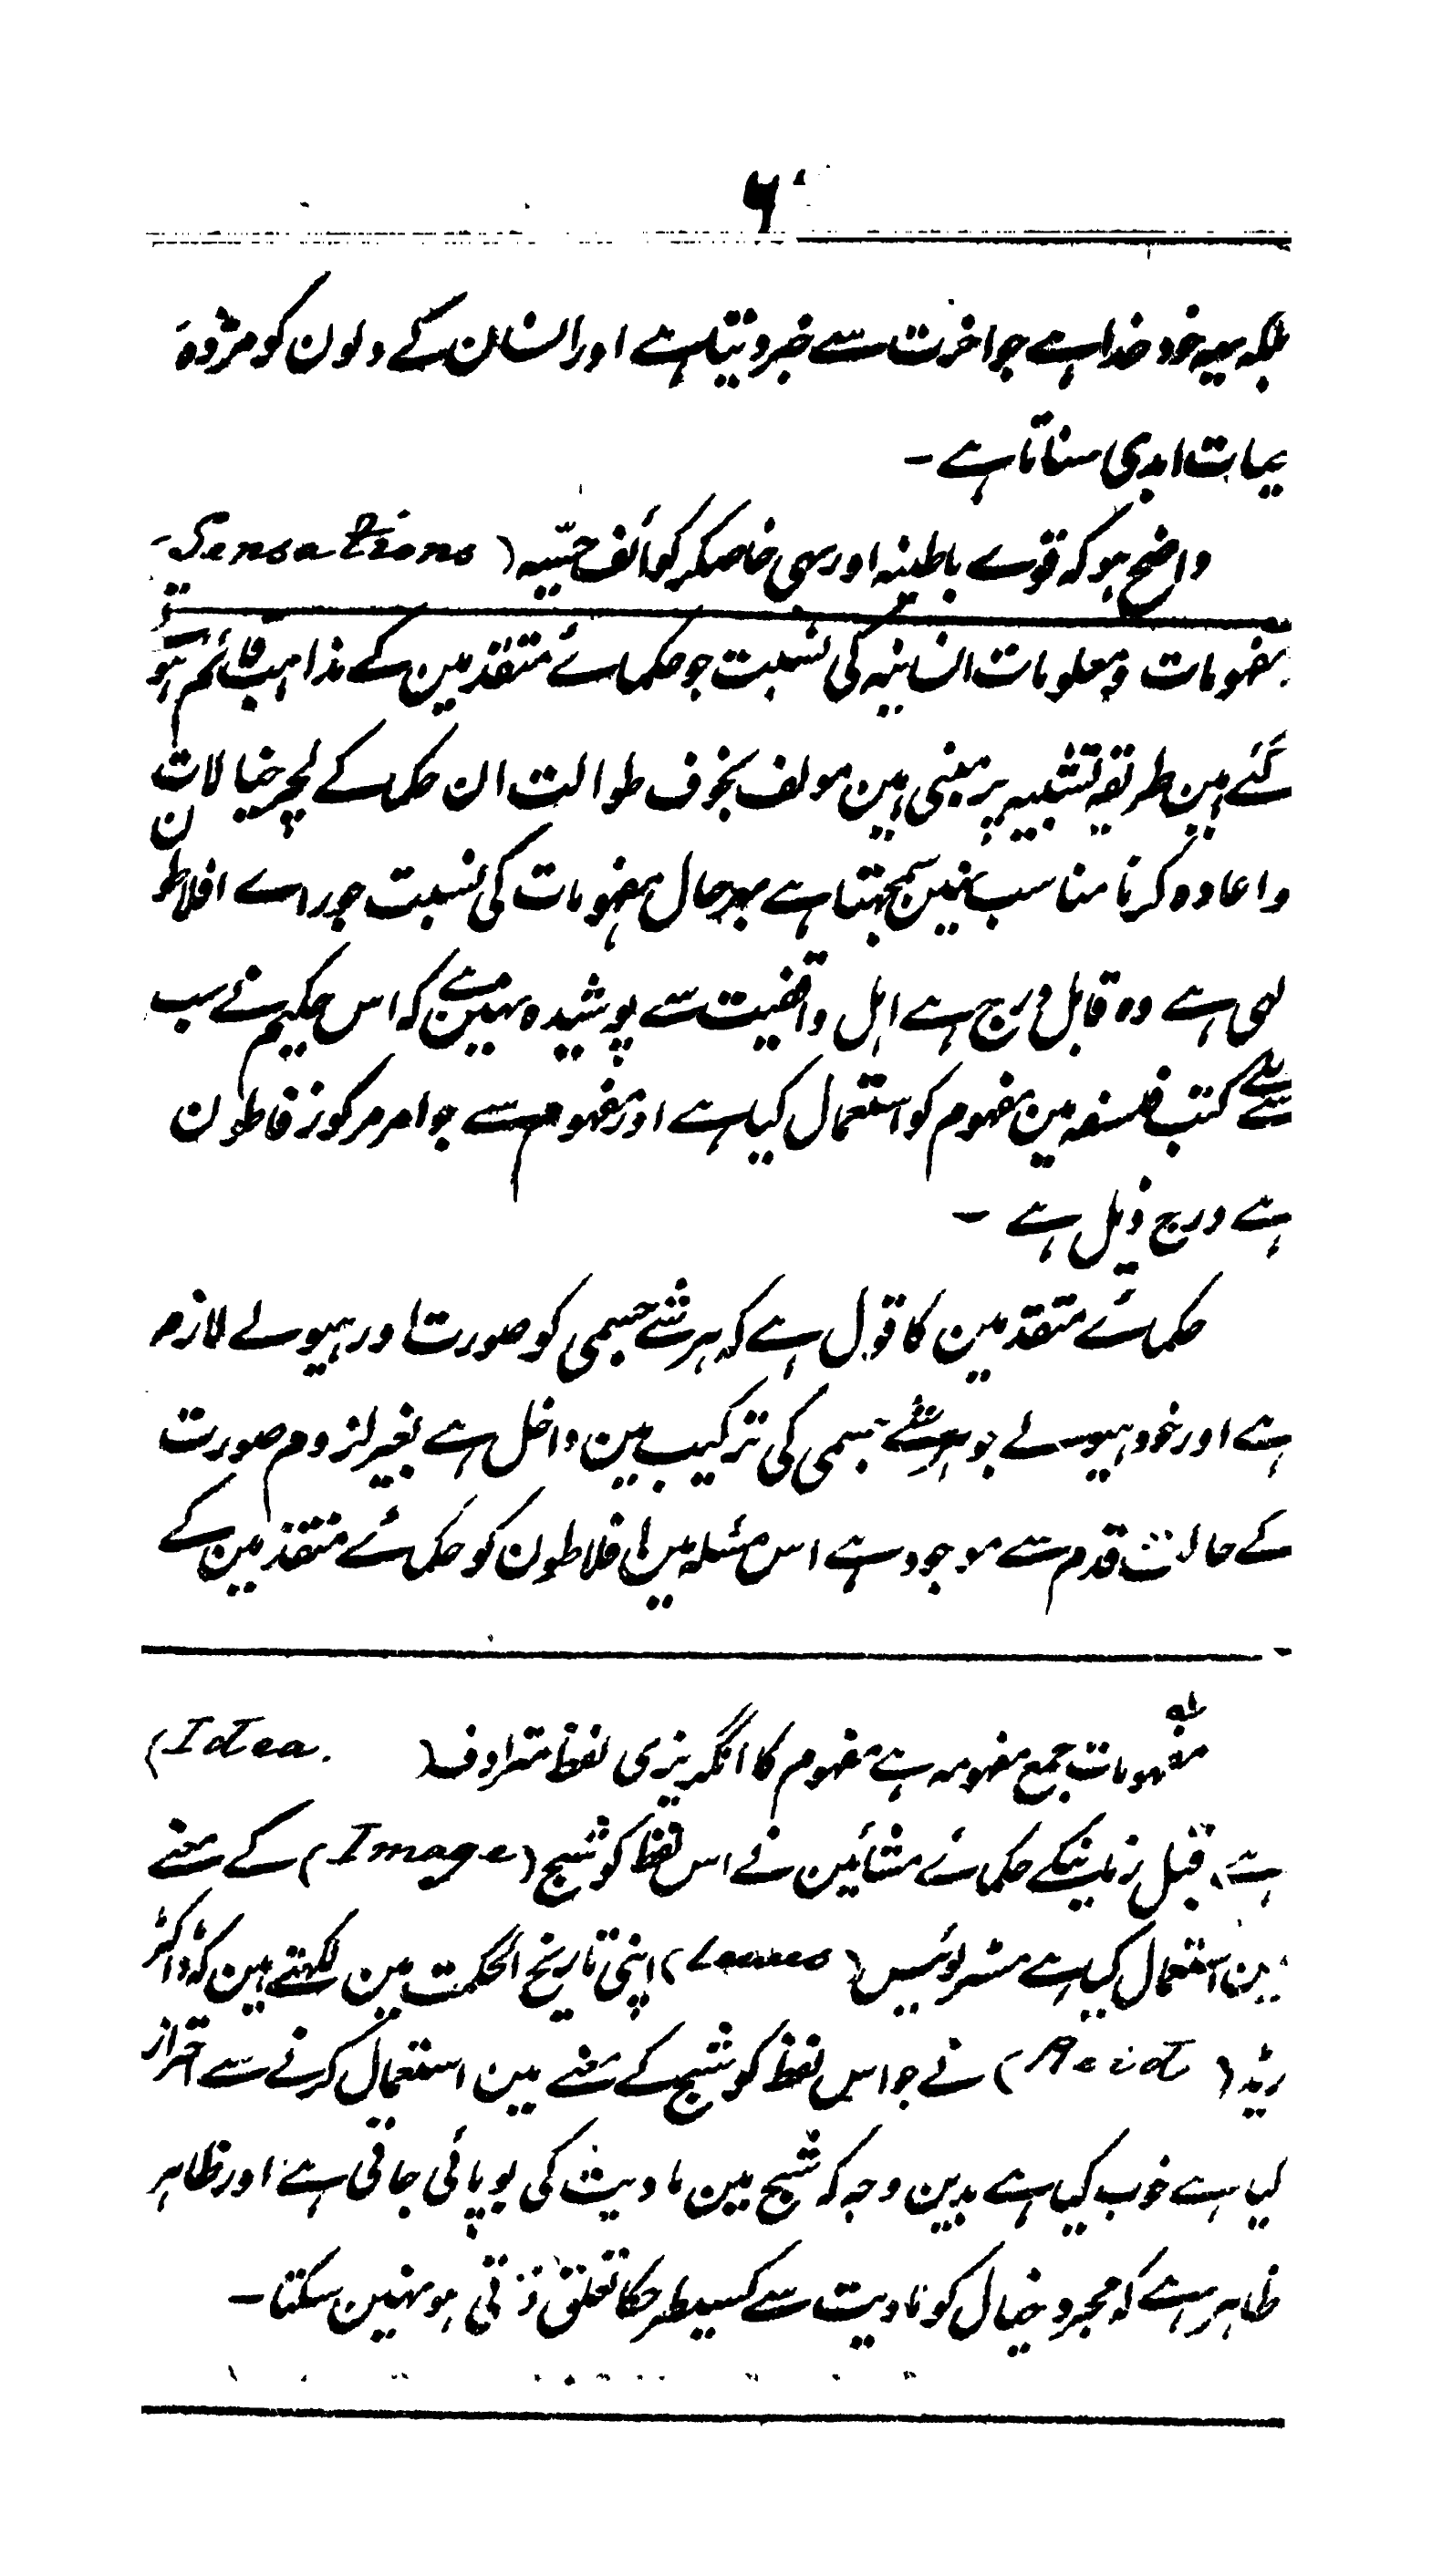 ۶
بلکہ یہہ خود خدا ہے جو اخرت سے خبر دیتا ہے اور انسان کے دلون کو مژدہَ
یات ابدی سناتا ہے ۔
واضح ہو کہ قوے باطنیہ اور سی خاصکر کوائف حسّیہ (Sensations-
مفہومات و معلومات انسانیہ کی نسبت جو حکمائے متقدمین کے مذاہب قائم ہو
گئے ہین طریقہ تشبیہ پر مبنی ہین مولف بخوف طوالت ان حکما کے لچر خیالات
و اعادہ کرنا مناسب نہین سمجہتا ہے بہر حال مفہومات کی نسبت جو راے افلاطون
کی ہے وہ قابل درج ہے اہل واقفیت سے پوشیدہ نہین ہے کہ اس حکیم نے سب
سے پہلے کتب فلسفہ مین مفہوم کو استعمال کیا ہے اور مفہوم سے جو امر مرکوز فاطون
ہے درج ذیل ہے ۔
حکمائے متقدمین کا قول ہے کہ ہر شے جسمی کو صورت اور ہیولے لازم
ہے اور خود ہیولے جو ہر شے جسمی کی ترکیب مین داخل ہے بغیر لزوم صورت
کے حالت قدم سے موجود ہے اس مسئلہ مین افلاطون کو حکمائے متقدمین کے
مفہومات جمع مفہومہ ہے مفہوم کا انگریزی لفظ مترادف (Idea.)
ہے قبل زمانیکے حکمائے مشائین نے اس لفظ کو شبح (Image) کے معنے
مین استعمال کیا ہے مسٹر لوئیس (Lewes) اپنی تاریخ الحکمت مین لکہتے ہین کہ ڈاکٹر
ریڈ (Reid) نے جو اس لفظ کو شبح کے معنے مین استعمال کرنے سے احتراز
کیا ہے خوب کیا ہے بدین وجہ کہ شبح مین مادیت کی بو پائی جاتی ہے اور ظاہر
ظاہر ہے کہ مجرد خیال کو مادیت سے کسیطرحکا تعلق ذرتی ہو نہین سکتا ۔